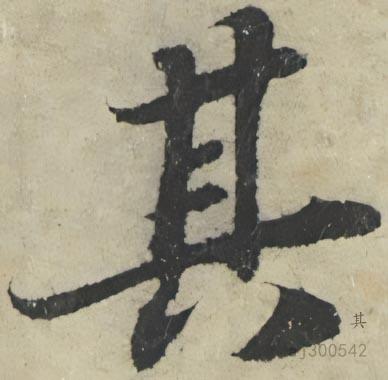 其
其
aj300542